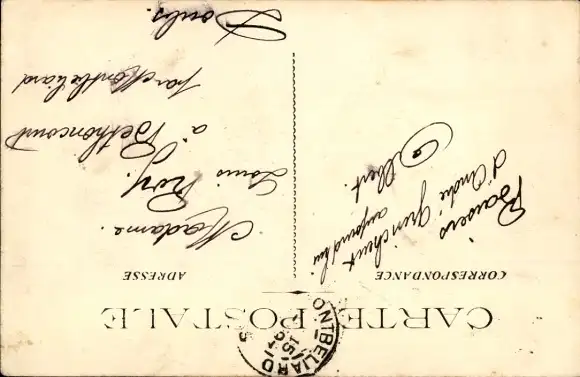 CARTE POSTALE
CORRESPONDANCE
ADRESSE
Baisers
d'André
aujourd'hui
Albert.
Madame.
Louis Rery.
à Bethoncourt
par Montbéliard
Doubs.
MONTBELIARD
15